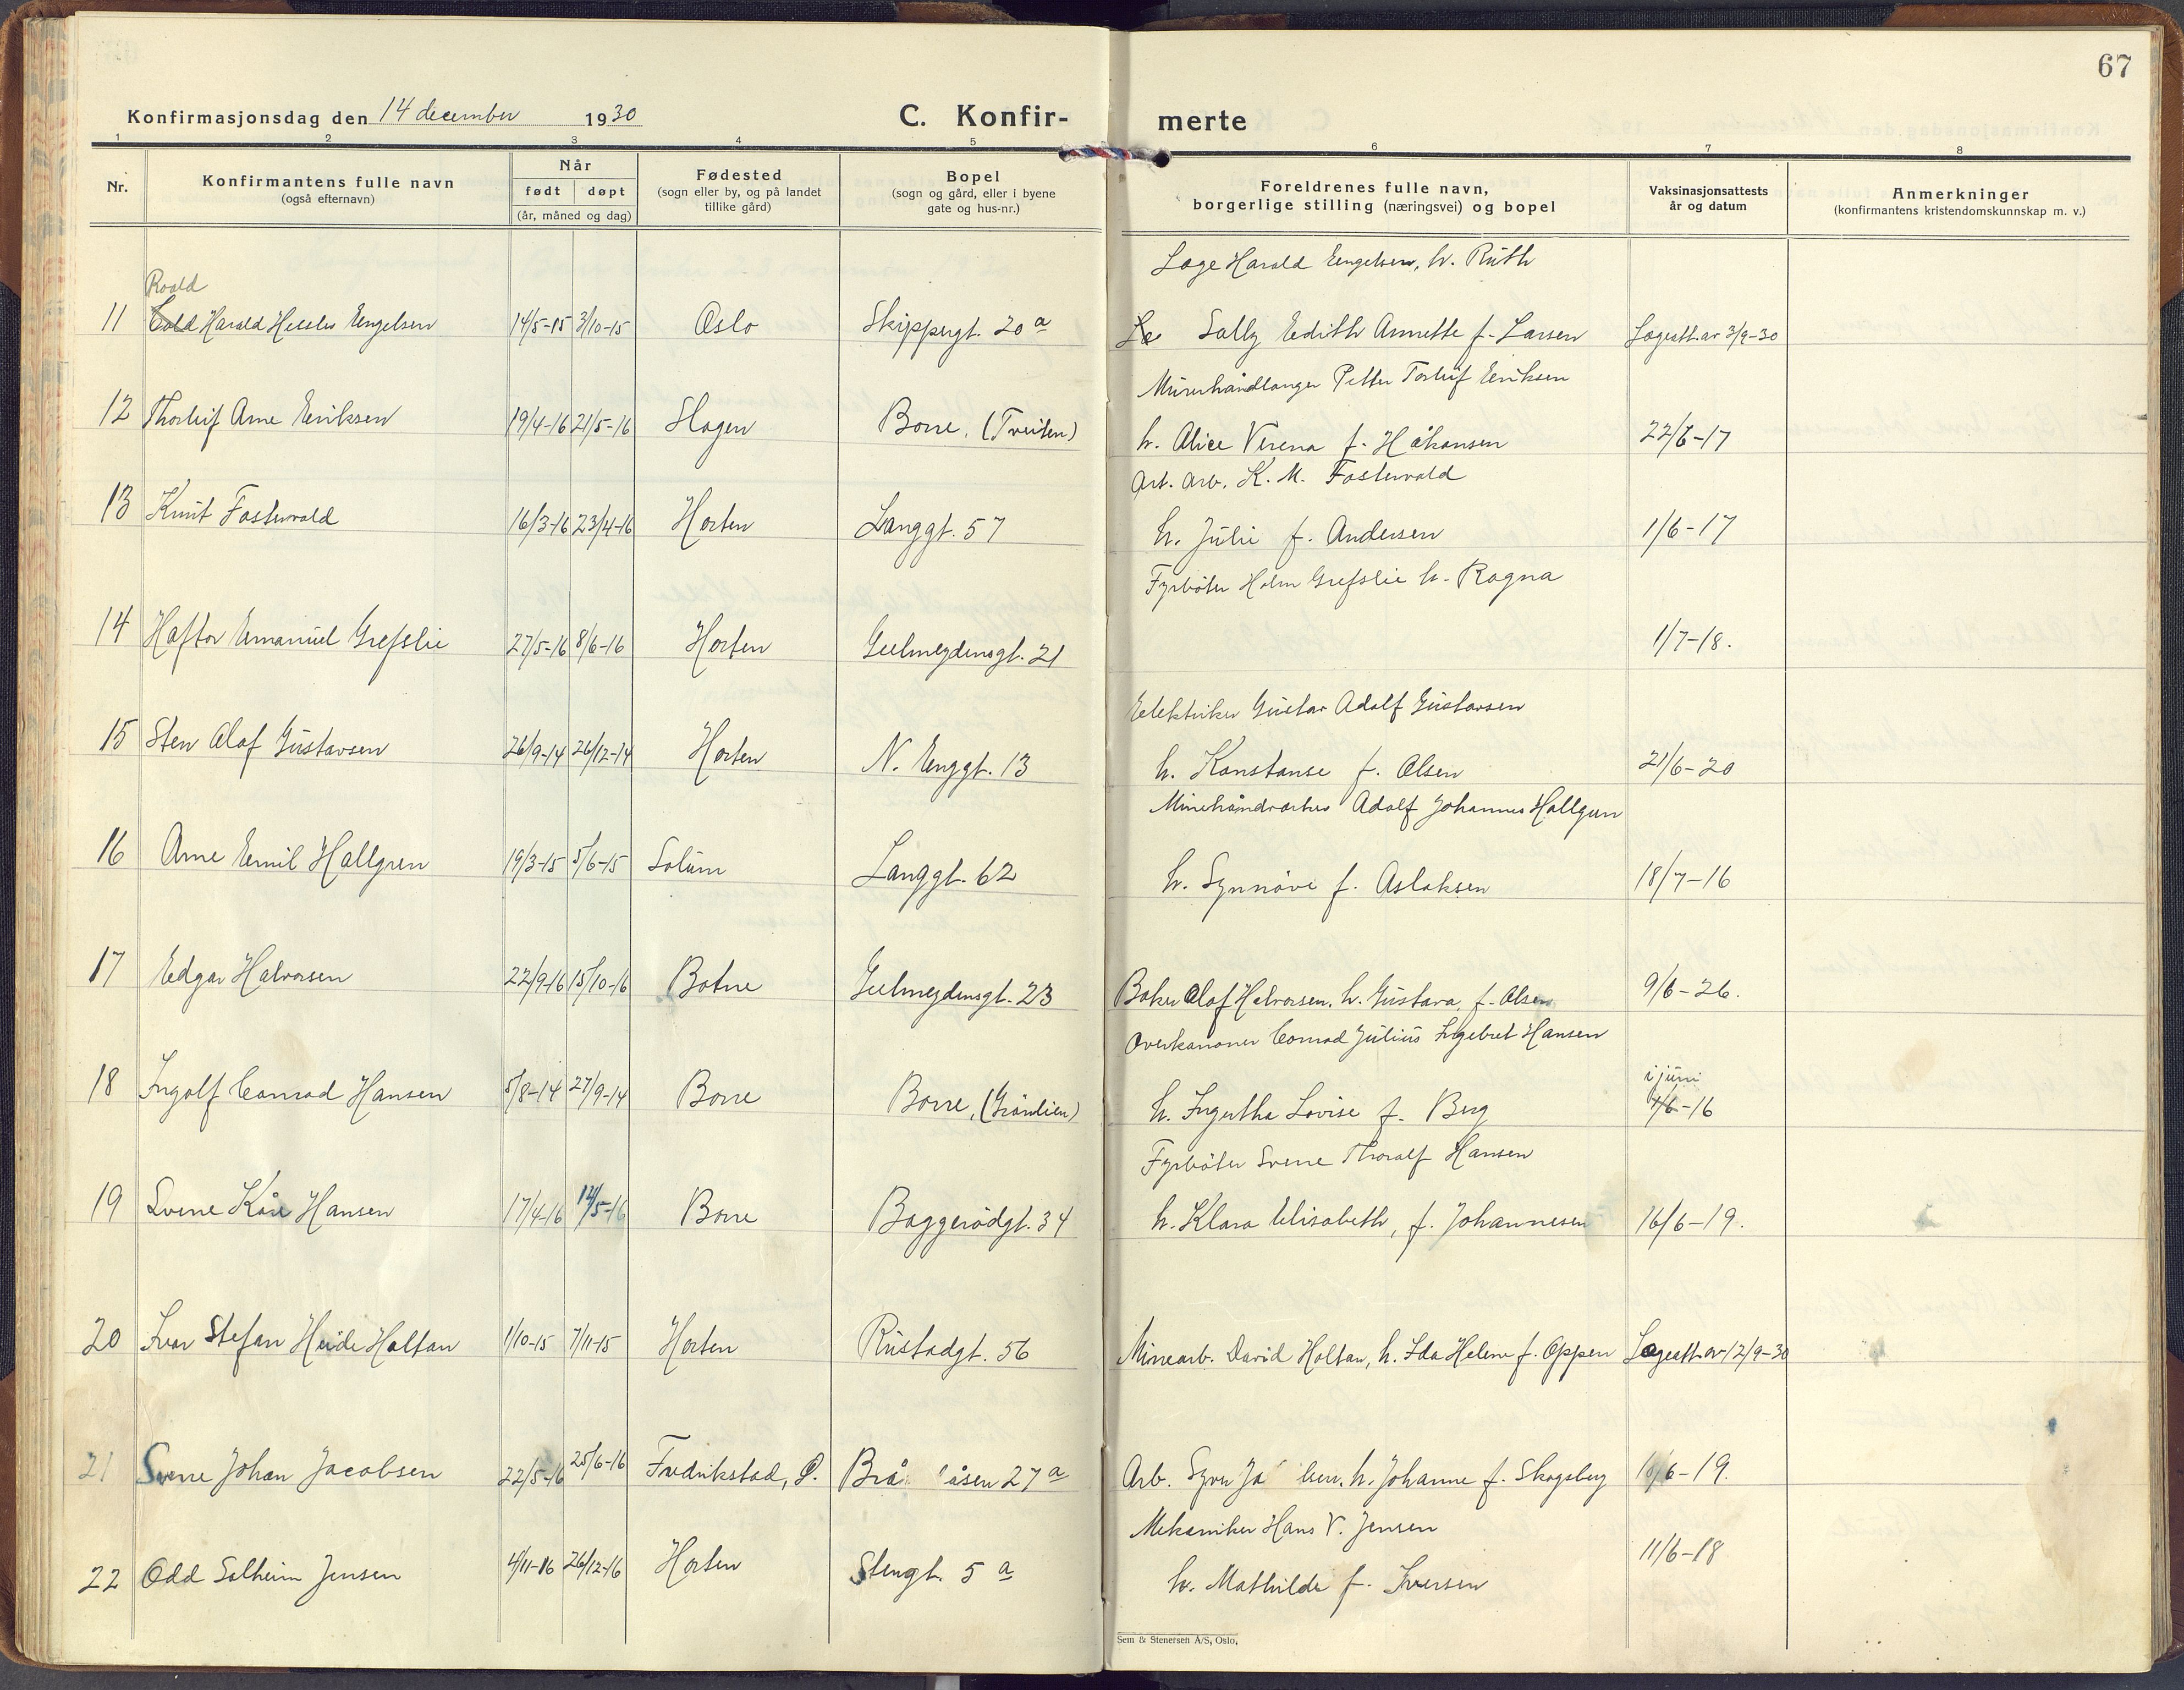 67
Konfirmasjonsdag den 14 december 1930
C. Konfir- merte
1 2 3 4 5 6 7 8
Nr.
Konfirmantens fulle navn
(også efternavn)
Når
født døpt
(år, måned og dag)
Fødested
(sogn eller by, og på landet
tillike gård)
Bopel
(sogn og gård, eller i byene
gate og hus-nr.)
Foreldrenes fulle navn,
borgerlige stilling (næringsvei) og bopel
Vaksinasjonsattests
år og datum
Anmerkninger
(konfirmantens kristendomskunnskap m. v.)
Roald
Læge Harald Engelsen, h. Ruth
11 Harald Engelsen 14/5-15 3/10-15 Oslo Skippergt. 20 a Sally Edith Annette f. Larsen Lægeatt. av 3/9-30
Murerhåndlanger Petter Torleif Eriksen
12 Thorleif Arne Eriksen 19/4-16 21/5-16 Slagen Borre, (Tveiten) h. Alice Verena f. Håkansen 22/6-17
Art. arb. K. M. Fostervold
13 Knut Fostervold 16/3-16 23/4-16 Horten Langgt. 57 h. Julie f. Andersen 1/6-17
Fyrbøter Holm Grefslie h. Ragna
14 Haftor Emanuel Grefslie 27/5-16 8/6-16 Horten Geelmeydensgt. 21 1/7-18.
Elektriker Gustav Adolf Gustavsen
15 Sten Olaf Gustavsen 26/9-14 26/12-14 Horten N. Enggt. 13 h. Konstanse f. Olsen 21/6-20
Minehåndværker Adolf Johannes Hallgren
16 Arne Emil Hallgren 19/3-15 5/6-15 Solum Langgt. 62 h. Synnøve f. Aslaksen 18/7-16
17 Edgar Halvorsen 22/9-16 15/10-16 Botne Geelmeydensgt. 23 Baker Olaf Halvorsen, h. Gustava, f. Olsen 9/6-26.
Overkanoner Conrad Julius Ingebret Hansen
i juni
18 Ingolf Conrad Hansen 5/8-14 27/9-14 Borre Borre, (Grønlien) h. Ingertha Lovise f. Berg -16
Fyrbøter Sverre Thoralf Hansen
19 Sverre Kåre Hansen 17/4-16 14/5-16 Borre Baggerødgt. 34 h. Klara Elisabeth, f. Johannesen 16/6-19.
20 Ivar Stefan Heide Holtan 1/10-15 7/11-15 Horten Rustadgt. 56 Minearb. David Holtan, h. Ida Helene f. Oppen Lægeatt. av 12/9-30
21 Sverre Johan Jacobsen 22/5-16 25/6-16 Fredrikstad, Ø. Brå åsen 27 a Arb. Ja bsen, h. Johanne f. Skogsberg 10/6-19.
Mekaniker Hans V. Jensen
22 Odd Solheim Jensen 4/11-16 26/12-16 Horten Stengt. 5 a h. Mathilde f. Iversen 11/6-18
Sem & Stenersen A/S, Oslo.